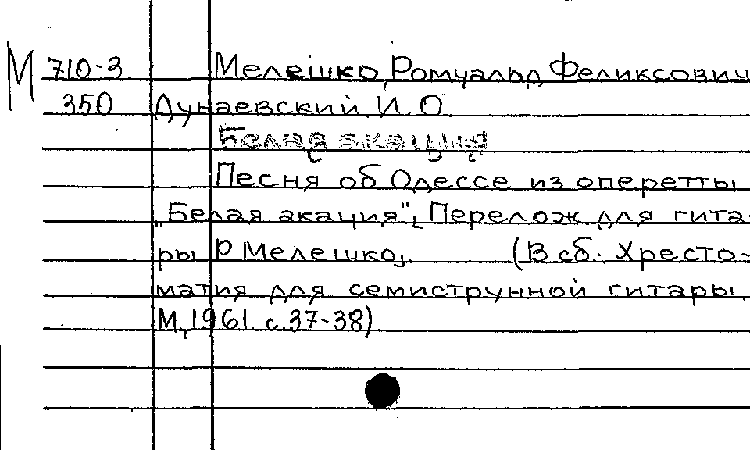 М 710-3 Мелешко, Ромуальд Феликсович
350 Дунаевский, И. О.
Белая акация
Песня об Одессе из оперетты
„Белая акация". Перелож. для гита-
ры Р. Мелешко. (В сб. Хресто-
матия для семиструнной гитары.
М., 1961. с. 37-38)